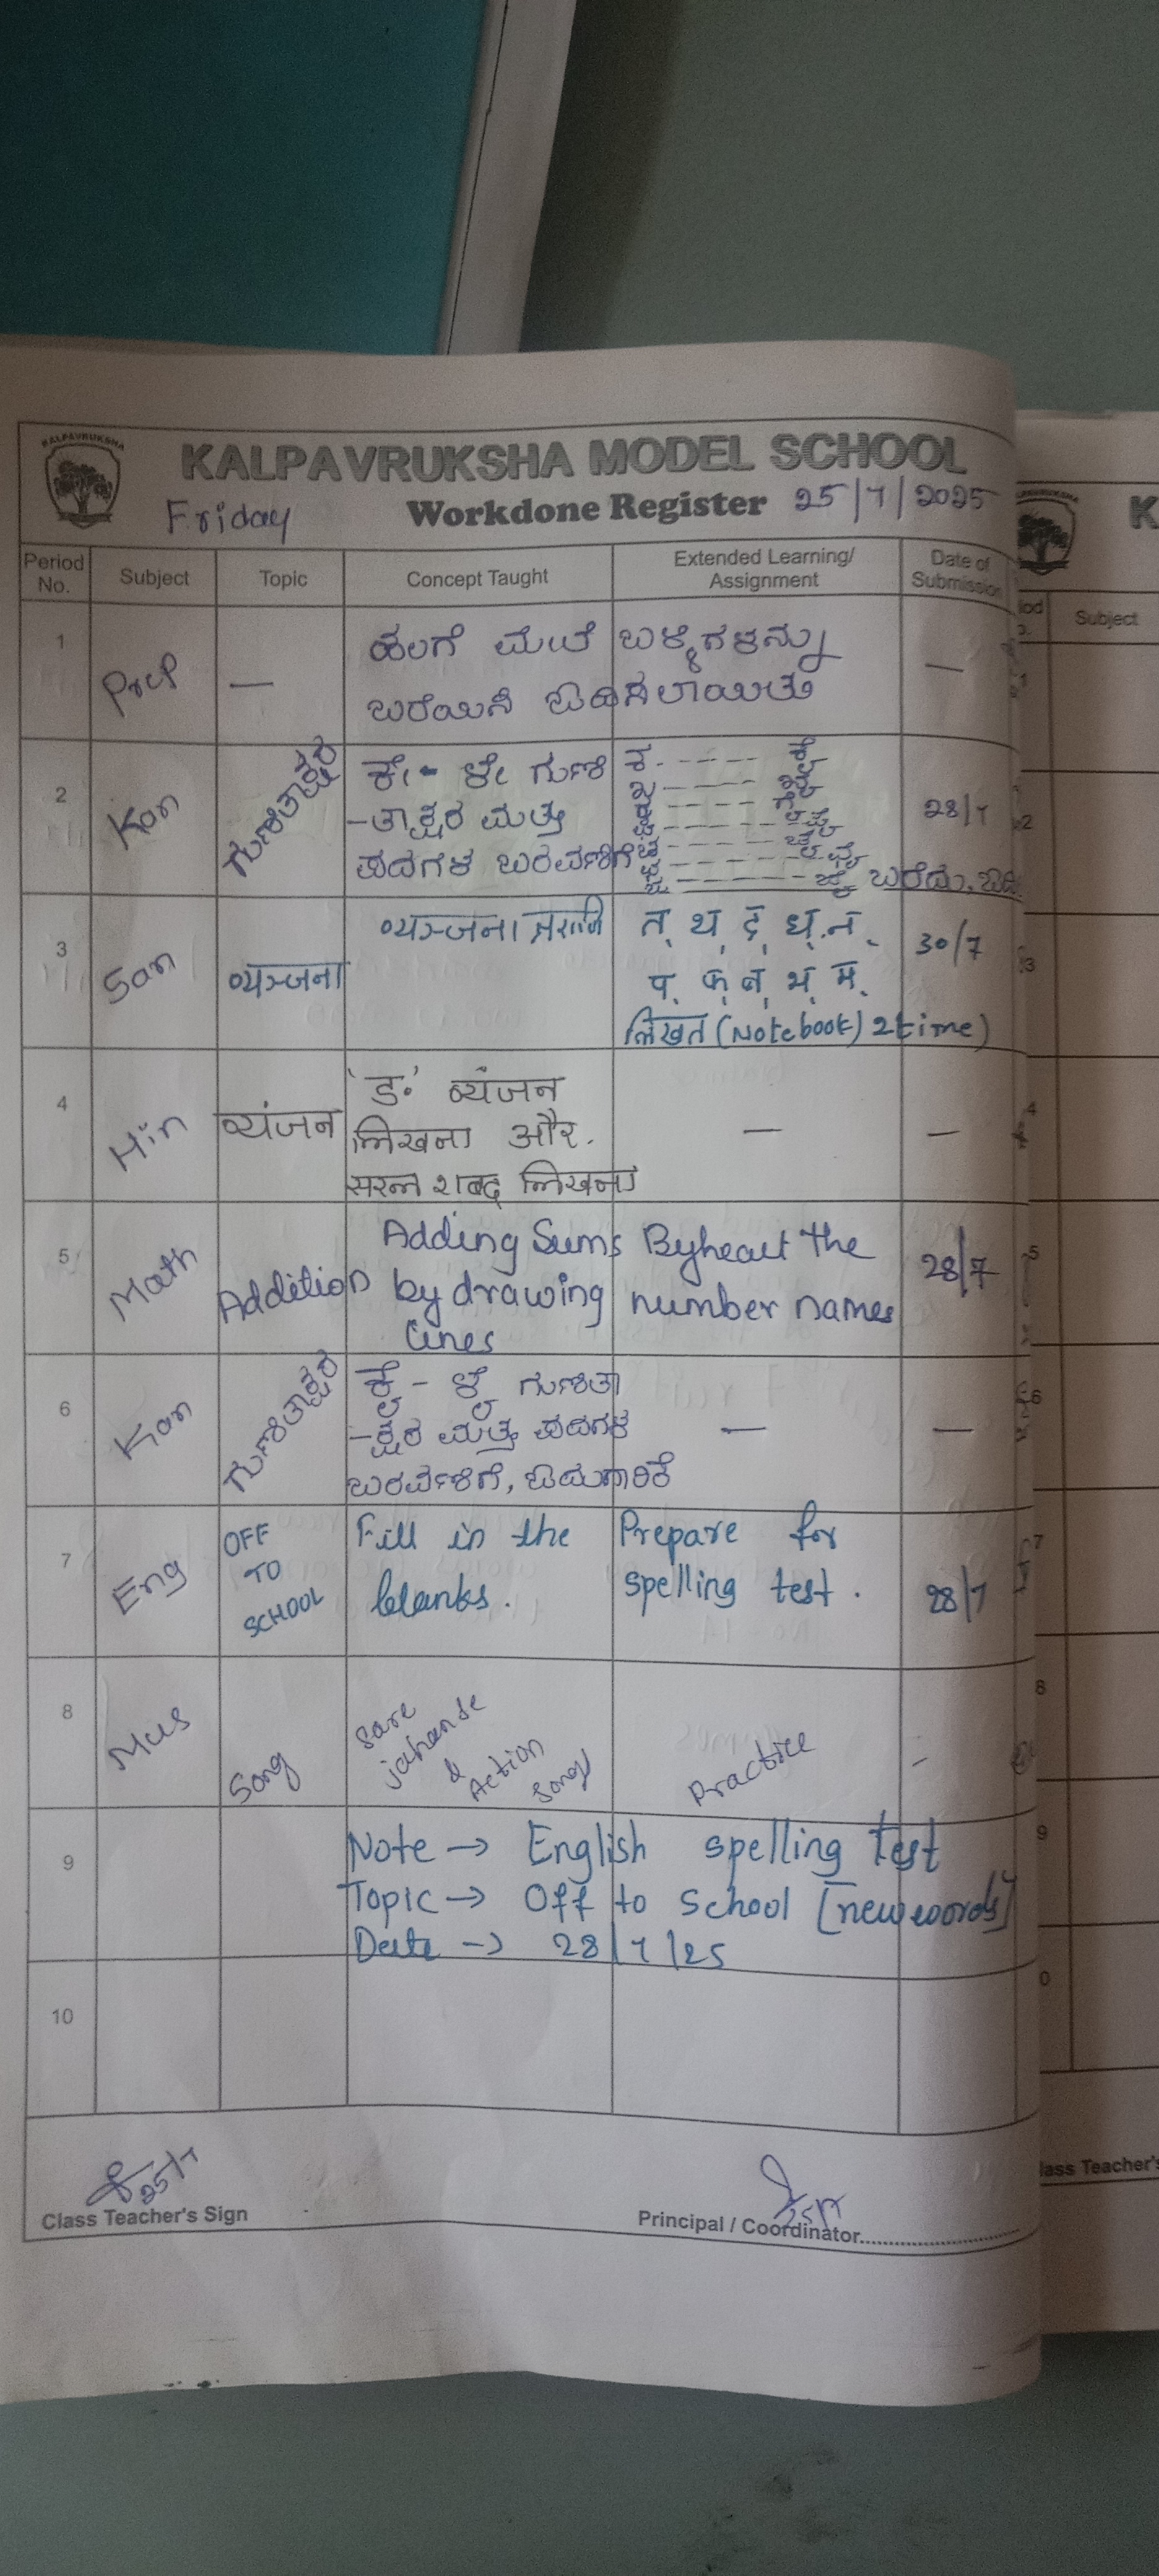 KALPAVRUKSHA
KALPAVRUKSHA MODEL SCHOOL
Friday Workdone Register 25/7/2025
Period No. Subject Topic Concept Taught Extended Learning/ Assignment Date of Submission
1 Prep — ಹಲಗೆ ಮೇಲೆ ಬಳ್ಳಿಗಳನ್ನು —
ಬರೆಯಿಸಿ
2 Kan ಗುಣಿತಾಕ್ಷರ ಕೇ - ಳೇ ಗುಣಿ 28/7
-ತಾಕ್ಷರ ಮತ್ತು
ಪದಗಳ ಬರವಣಿಗೆ
ಬರೆದು.
3 San व्यञ्जना व्यञ्जना त् थ् द् ध् न् 30/7
प् फ् ब् भ् म्
लिखत (Notebook) 2 time)
4 Hin व्यंजन 'ङ' व्यंजन — —
लिखना और
सरल शब्द लिखना
5 Math Addition Adding Sums Byheart the 28/7
by drawing number names
lines
6 Kan ಗುಣಿತಾಕ್ಷರ ಕೈ - ಳೈ ಗುಣಿತಾ — —
-ಕ್ಷರ ಮತ್ತು ಪದಗಳ
ಬರವಣಿಗೆ, ಓದುಗಾರಿಕೆ
7 Eng OFF TO SCHOOL Fill in the Prepare for 28/7
blanks. spelling test.
8 Mus Song Sare jahanse & Action Song Practice -
9 Note → English spelling test
Topic → Off to School [new words]
Date → 28/7/25
10
25/7 25/7
Class Teacher's Sign Principal / Coordinator
K
Subject
2
3
4
5
6
7
8
9
0
lass Teacher's